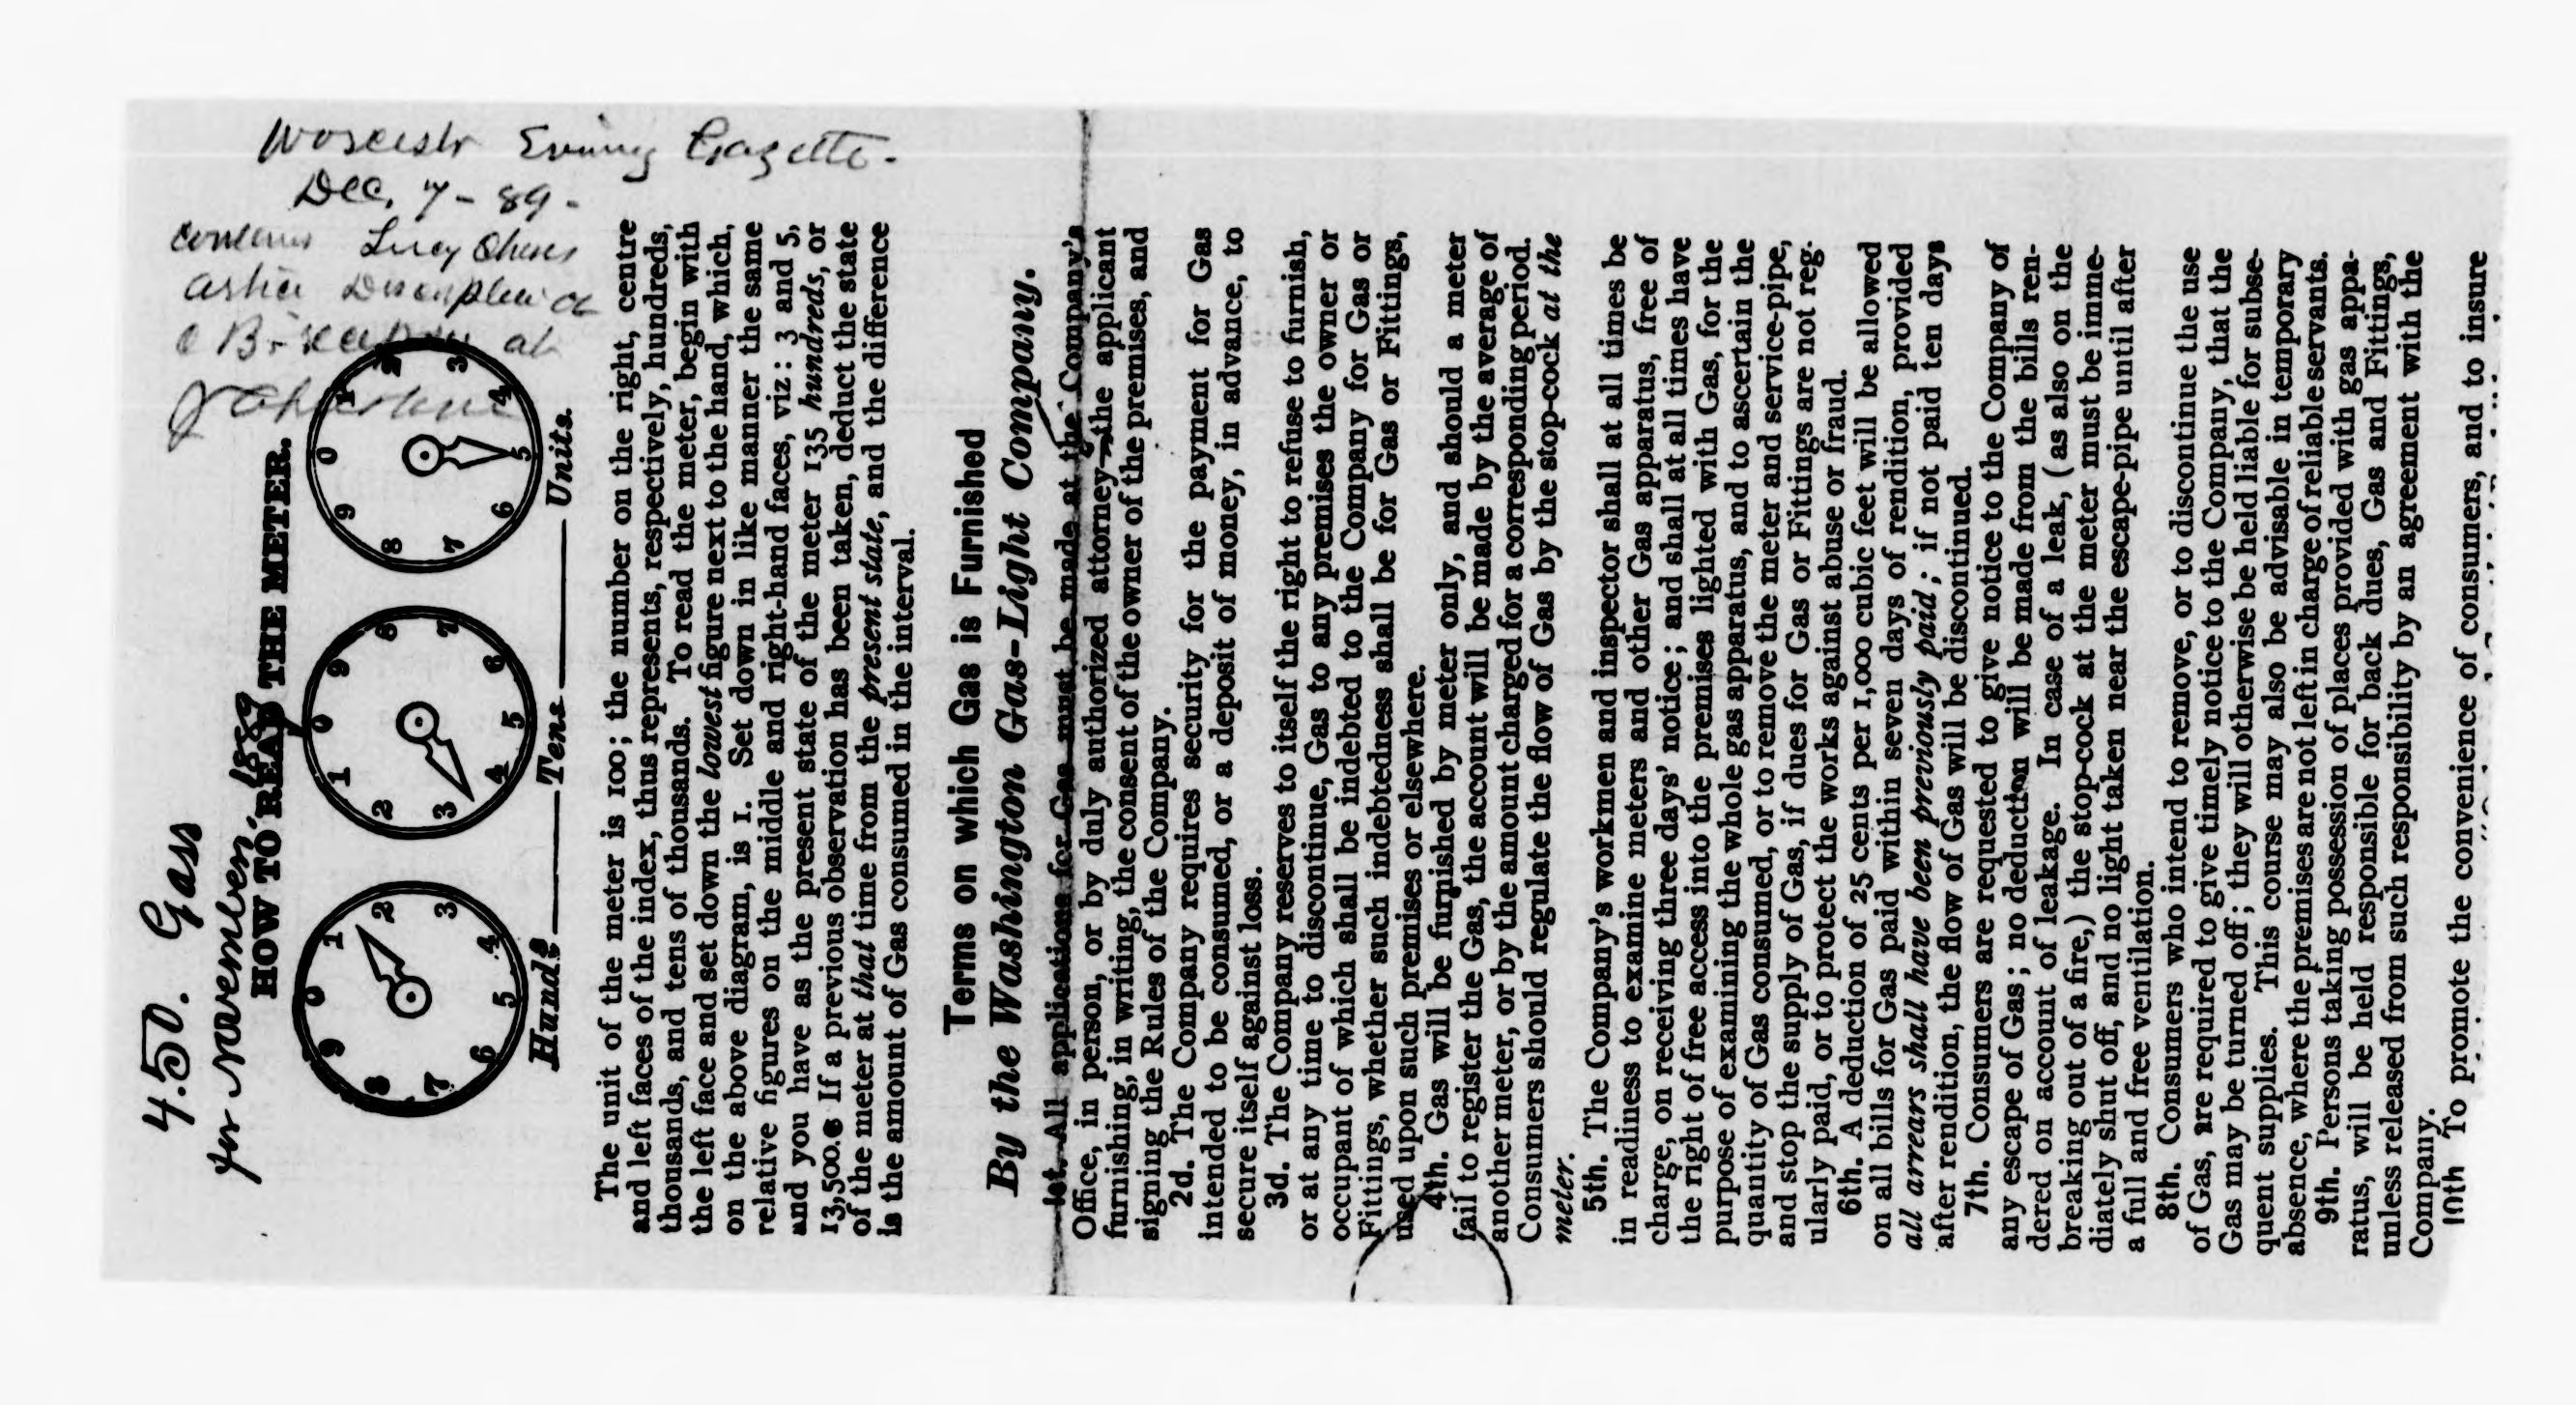 Worcester Evening Gazette.
Dec. 7 - 89 -
contains Lucy
at
4.50. Gass
for November. 1889
HOW TO READ THE METER.
0 1 2 3 4 5 6 7 8 9
0 1 2 3 4 5 6 7 8 9
0 1 2 3 4 5 6 7 8 9
Hunds Tens Units.
The unit of the meter is 100; the number on the right, centre
and left faces of the index, thus represents, respectively, hundreds,
thousands, and tens of thousands. To read the meter, begin with
the left face and set down the lowest figure next to the hand, which,
on the above diagram, is 1. Set down in like manner the same
relative figures on the middle and right-hand faces, viz: 3 and 5,
and you have as the present state of the meter 135 hundreds, or
13,500. If a previous observation has been taken, deduct the state
of the meter at that time from the present state, and the difference
is the amount of Gas consumed in the interval.
Terms on which Gas is Furnished
By the Washington Gas-Light Company.
1st. All applications for Gas must be made at the Company's
Office, in person, or by duly authorized attorney—the applicant
furnishing, in writing, the consent of the owner of the premises, and
signing the Rules of the Company.
2d. The Company requires security for the payment for Gas
intended to be consumed, or a deposit of money, in advance, to
secure itself against loss.
3d. The Company reserves to itself the right to refuse to furnish,
or at any time to discontinue, Gas to any premises the owner or
occupant of which shall be indebted to the Company for Gas or
Fittings, whether such indebtedness shall be for Gas or Fittings,
used upon such premises or elsewhere.
4th. Gas will be furnished by meter only, and should a meter
fail to register the Gas, the account will be made by the average of
another meter, or by the amount charged for a corresponding period.
Consumers should regulate the flow of Gas by the stop-cock at the
meter.
5th. The Company's workmen and inspector shall at all times be
in readiness to examine meters and other Gas apparatus, free of
charge, on receiving three days' notice; and shall at all times have
the right of free access into the premises lighted with Gas, for the
purpose of examining the whole gas apparatus, and to ascertain the
quantity of Gas consumed, or to remove the meter and service-pipe,
and stop the supply of Gas, if dues for Gas or Fittings are not reg-
ularly paid, or to protect the works against abuse or fraud.
6th. A deduction of 25 cents per 1,000 cubic feet will be allowed
on all bills for Gas paid within seven days of rendition, provided
all arrears shall have been previously paid; if not paid ten days
after rendition, the flow of Gas will be discontinued.
7th. Consumers are requested to give notice to the Company of
any escape of Gas; no deduction will be made from the bills ren-
dered on account of leakage. In case of a leak, (as also on the
breaking out of a fire,) the stop-cock at the meter must be imme-
diately shut off, and no light taken near the escape-pipe until after
a full and free ventilation.
8th. Consumers who intend to remove, or to discontinue the use
of Gas, are required to give timely notice to the Company, that the
Gas may be turned off; they will otherwise be held liable for subse-
quent supplies. This course may also be advisable in temporary
absence, where the premises are not left in charge of reliable servants.
9th. Persons taking possession of places provided with gas appa-
ratus, will be held responsible for back dues, Gas and Fittings,
unless released from such responsibility by an agreement with the
Company.
10th To promote the convenience of consumers, and to insure